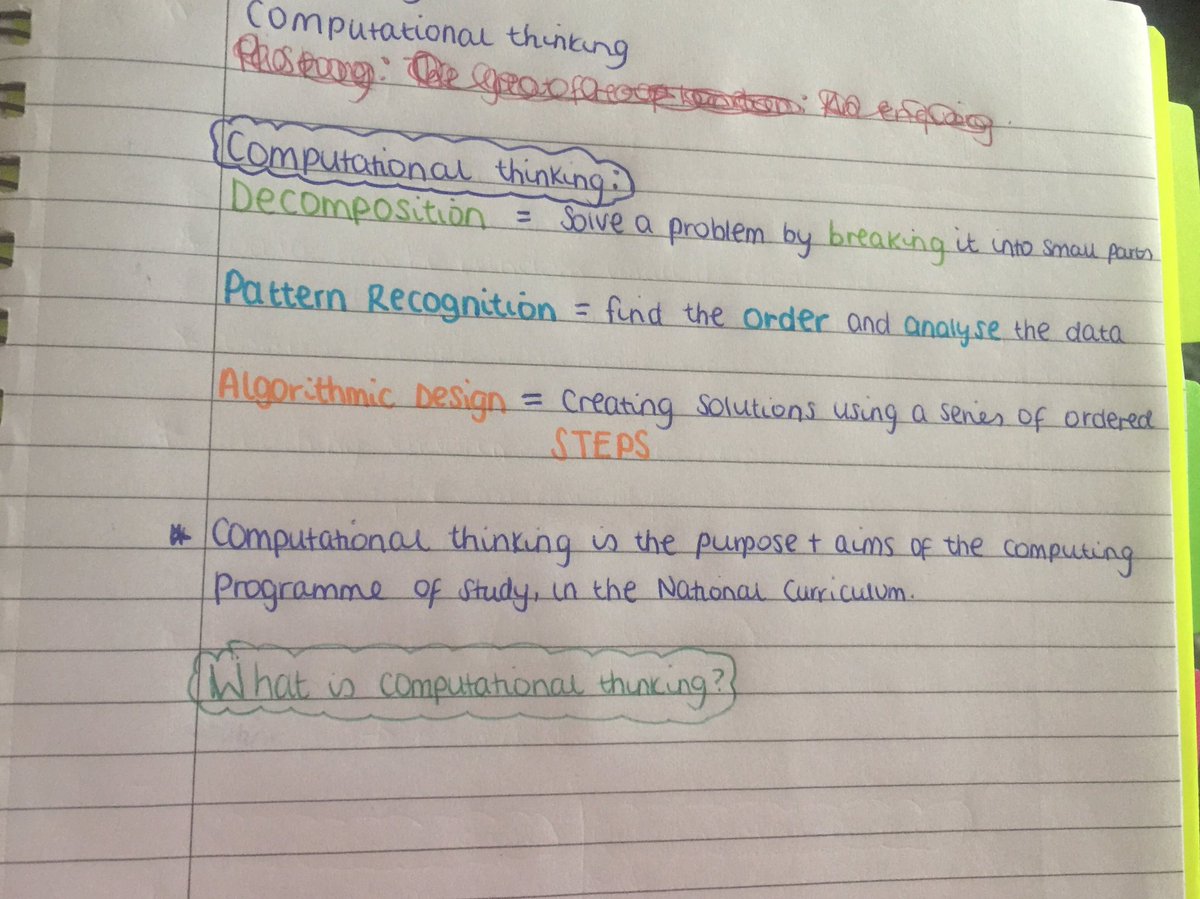 Computational thinking
Computational thinking:
Decomposition = Solve a problem by breaking it into small parts
Pattern Recognition = find the order and analyse the data
Algorithmic Design = Creating solutions using a series of ordered
STEPS
* Computational thinking is the purpose + aims of the computing
Programme of Study, in the National Curriculum.
What is computational thinking?